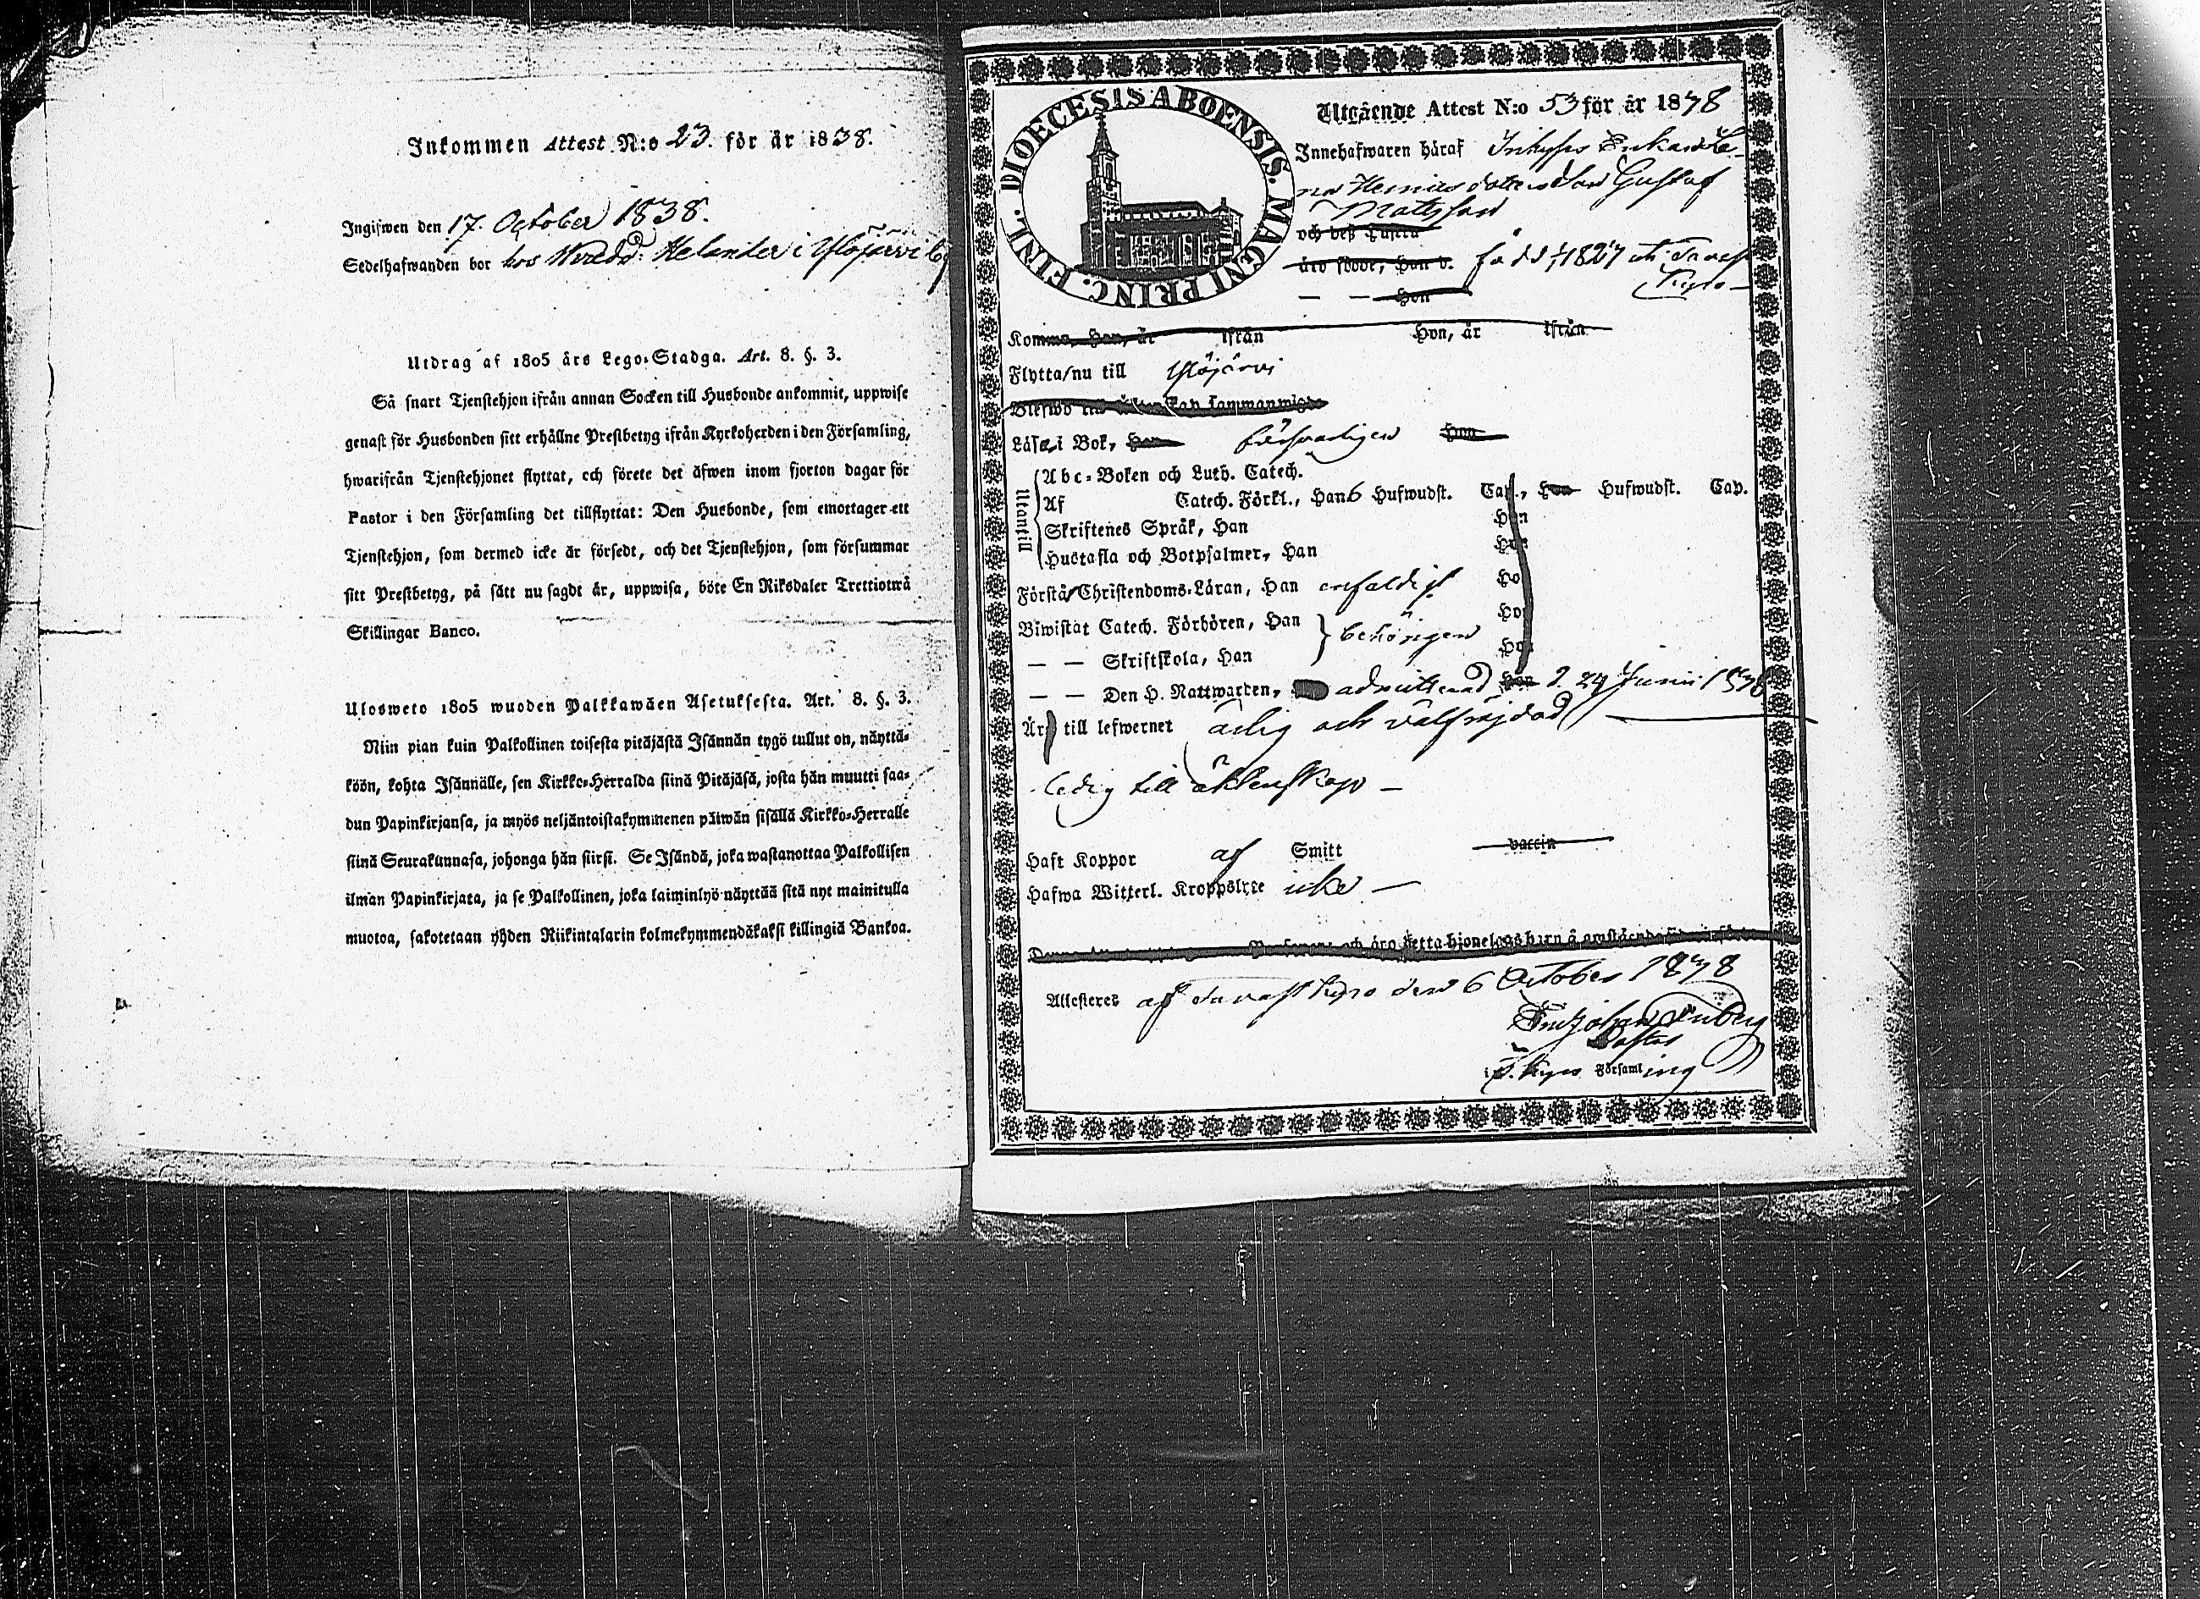 Inkommen Attest N:o 23. för år 1838.
Ingifwen den 17. October 1838.
Sedelhafwanden bor hos Helander i Ylöjärvi by
Utdrag af 1805 års Lego-Stadga. Art. 8. §. 3.
Så snart Tjenstehjon ifrån annan Socken till Husbonde ankommit, uppwise
genast för Husbonden sitt erhållne Prestbetyg ifrån Kyrkoherden i den Församling,
hwarifrån Tjenstehjonet flyttat, och förete det äfwen inom fjorton dagar för
Pastor i den Församling det tillflyttat: Den Husbonde, som emottager ett
Tjenstehjon, som dermed icke är försedt, och det Tjenstehjon, som försummar
sitt Prestbetyg, på sätt nu sagdt är, uppwisa, böte En Riksdaler Trettiotwå
Skillingar Banco.
Ulosweto 1805 wuoden Palkkawäen Asetuksesta. Art. 8. §. 3.
Niin pian kuin Palkollinen toisesta pitäjästä Isännän tygö tullut on, näyttä-
köön, kohta Isännälle, sen Kirkko-Herralda siinä Pitäjäsä, josta hän muutti saa-
dun Papinkirjansa, ja myös neljäntoistakymmenen päiwän sisällä Kirkko-Herralle
siinä Seurakunnasa, johonga hän siirsi. Se Isändä, joka wastanottaa Palkollisen
ilman Papinkirjata, ja se Palkollinen, joka laiminlyö näyttää sitä nyt mainitulla
muotoa, sakotetaan yhden Riikintalarin kolmekymmendäkaksi killingiä Bankoa.
DIOECESIS ABOENSIS. MAGNI PRINC. FINL.
Utgående Attest N:o 53 för år 1838
Innehafwaren häraf Inhyses Enkan Le-
na Henricsdotters Son Gustaf
Mattsson
och deß Hustru
äro födde, Han d. född 1827 i Tavast
Kyro
— — Hon
Komne, Han, år ifrån Hon, år ifrån
Flytta nu till Ylöjärvi
Blefwo till Äktenskap sammanwigde
Läsa i Bok, Han försvarligen Hon
Utantill
Abc-Boken och Luth. Catech.
Af Catech. Förkl., Han 6 Hufwudst. Cap., Hon Hufwudst. Cap.
Skriftenes Språk, Han Hon
Hustafla och Botpsalmer, Han Hon
Förstå Christendoms-Läran, Han enfaldigt Hon
Biwistat Catech. Förhören, Han behörigen Hon
— — Skriftskola, Han Hon
— — Den H. Nattwarden, admitterad Hon d. 24 Junii 1838
Är till lefwernet ärlig och välfräjdad
ledig till äktenskap —
Haft Koppor af Smitt vaccin
Hafwa Witterl. Kroppslyte icke —
Attesteres af Tavastkyro den 6 October 1838
Pastor
i T. Kyro Församling